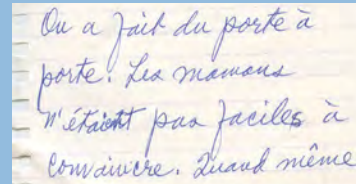 On a fait du porte à
porte. Les mamans
n'étaient pas faciles à
convaincre. Quand même